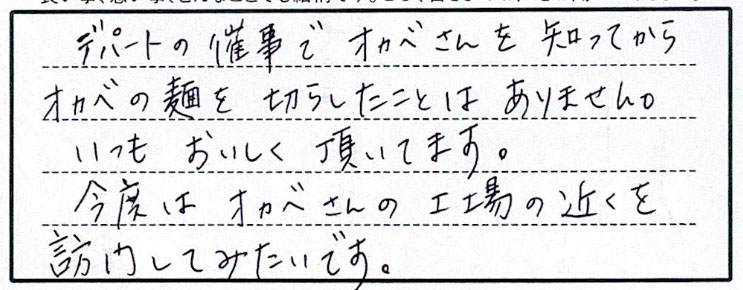 デパートの催事で オカベさんを 知ってから
オカベの麺を 切らしたことは ありません。
いつも おいしく 頂いてます。
今度は オカベさんの 工場の近くを
訪問してみたいです。